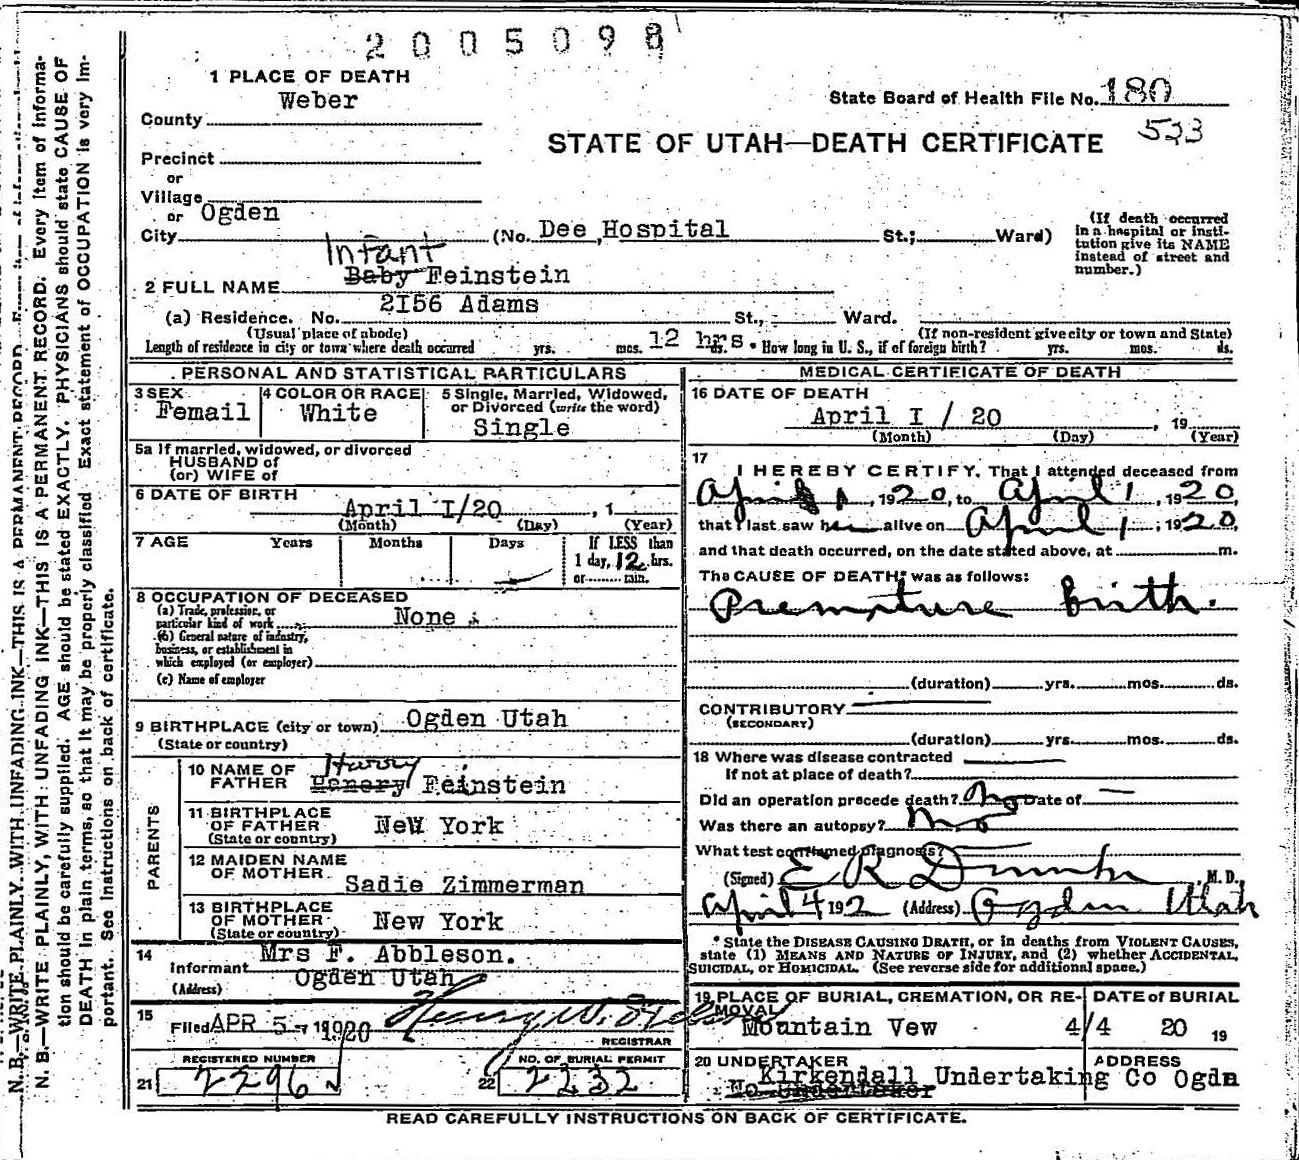 2005098
1 PLACE OF DEATH
Weber
County
State Board of Health File No. 180
533
STATE OF UTAH—DEATH CERTIFICATE
Precinct
or
Village
or Ogden
City (No. Dee Hospital St.; Ward)
(If death occurred in a hospital or insti-
tution give its NAME
instead of street and
number.)
Infant
2 FULL NAME Baby Feinstein
2I56 Adams
(a) Residence. No. St., Ward.
(Usual place of abode) (If non-resident give city or town and State)
Length of residence in city or town where death occurred yrs. mos. 12 hrs. ds. How long in U. S., if of foreign birth? yrs. mos. ds.
PERSONAL AND STATISTICAL PARTICULARS
3 SEX
Femail
4 COLOR OR RACE
White
5 Single, Married, Widowed,
or Divorced (write the word)
Single
5a If married, widowed, or divorced
HUSBAND of
(or) WIFE of
6 DATE OF BIRTH
April I/20 , 1
(Month) (Day) (Year)
7 AGE Years Months Days If LESS than
1 day, 12 hrs.
or min.
8 OCCUPATION OF DECEASED
(a) Trade, profession, or
particular kind of work None
(b) General nature of industry,
business, or establishment in
which employed (or employer)
(c) Name of employer
9 BIRTHPLACE (city or town) Ogden Utah
(State or country)
PARENTS
10 NAME OF
FATHER Harry
Henery Feinstein
11 BIRTHPLACE
OF FATHER New York
(State or country)
12 MAIDEN NAME
OF MOTHER
Sadie Zimmerman
13 BIRTHPLACE
OF MOTHER New York
(State or country)
14 Mrs F. Abbleson.
Informant
Ogden Utah
(Address)
15
Filed APR 5- 1920 Henry W.
REGISTRAR
REGISTERED NUMBER
21 2296
NO. OF BURIAL PERMIT
22 2232
MEDICAL CERTIFICATE OF DEATH
16 DATE OF DEATH
April I / 20 , 19
(Month) (Day) (Year)
17
I HEREBY CERTIFY, That I attended deceased from
April 1, 1920, to April 1, 1920,
that I last saw her alive on April 1, 1920,
and that death occurred, on the date stated above, at m.
The CAUSE OF DEATH* was as follows:
Premature birth.
(duration) yrs. mos. ds.
CONTRIBUTORY
(SECONDARY)
(duration) yrs. mos. ds.
18 Where was disease contracted
If not at place of death?
Did an operation precede death? No Date of —
Was there an autopsy? No
What test confirmed diagnosis?
(Signed) E R , M. D.
April 4 192 (Address) Ogden Utah
* State the DISEASE CAUSING DEATH, or in deaths from VIOLENT CAUSES,
state (1) MEANS AND NATURE OF INJURY, and (2) whether ACCIDENTAL,
SUICIDAL, or HOMICIDAL. (See reverse side for additional space.)
19 PLACE OF BURIAL, CREMATION, OR RE-
MOVAL
Mountain Vew
DATE of BURIAL
4/4 20 19
20 UNDERTAKER
Kirkendall Undertaking Co
No Undertaker
ADDRESS
Ogdn
READ CAREFULLY INSTRUCTIONS ON BACK OF CERTIFICATE.
N. B.—WRITE PLAINLY, WITH UNFADING INK—THIS IS A PERMANENT RECORD.
N. B.—WRITE PLAINLY, WITH UNFADING INK—THIS IS A PERMANENT RECORD. Every item of informa-
tion should be carefully supplied. AGE should be stated EXACTLY. PHYSICIANS should state CAUSE OF
DEATH in plain terms, so that it may be properly classified. Exact statement of OCCUPATION is very im-
portant. See instructions on back of certificate.